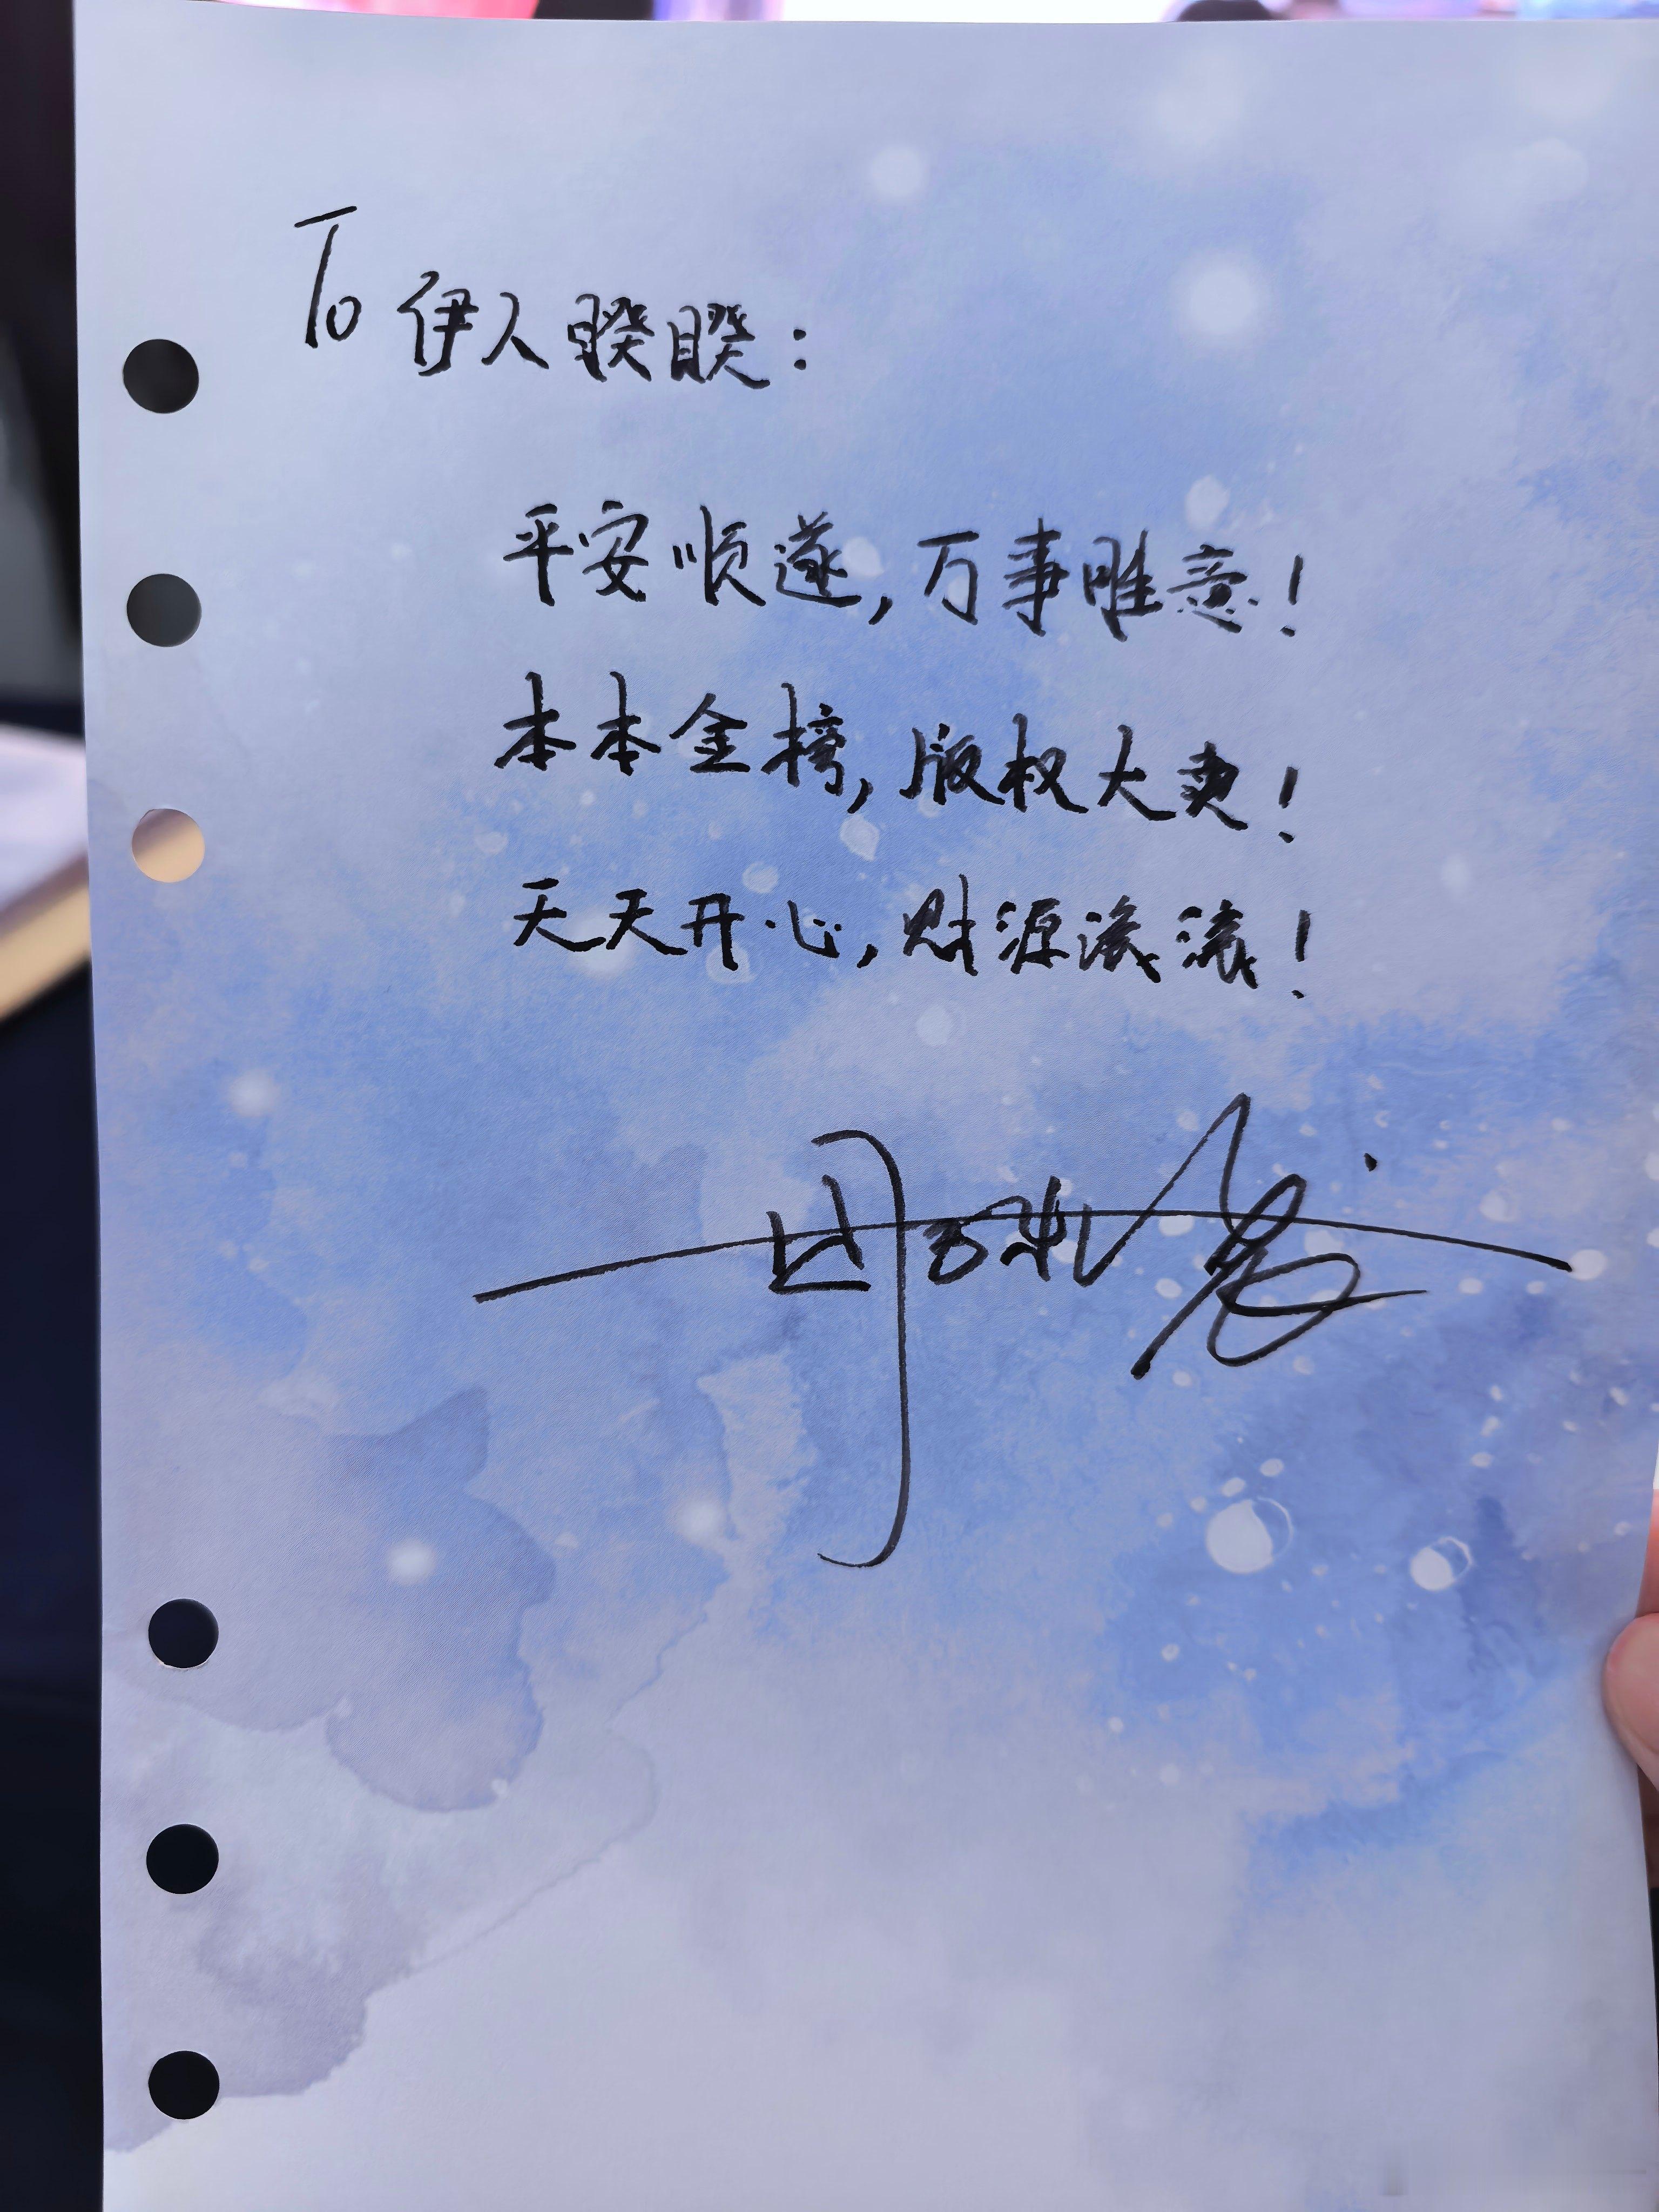 To 伊人睽睽：
平安顺遂，万事胜意！
本本金榜，版权大卖！
天天开心，财源滚滚！